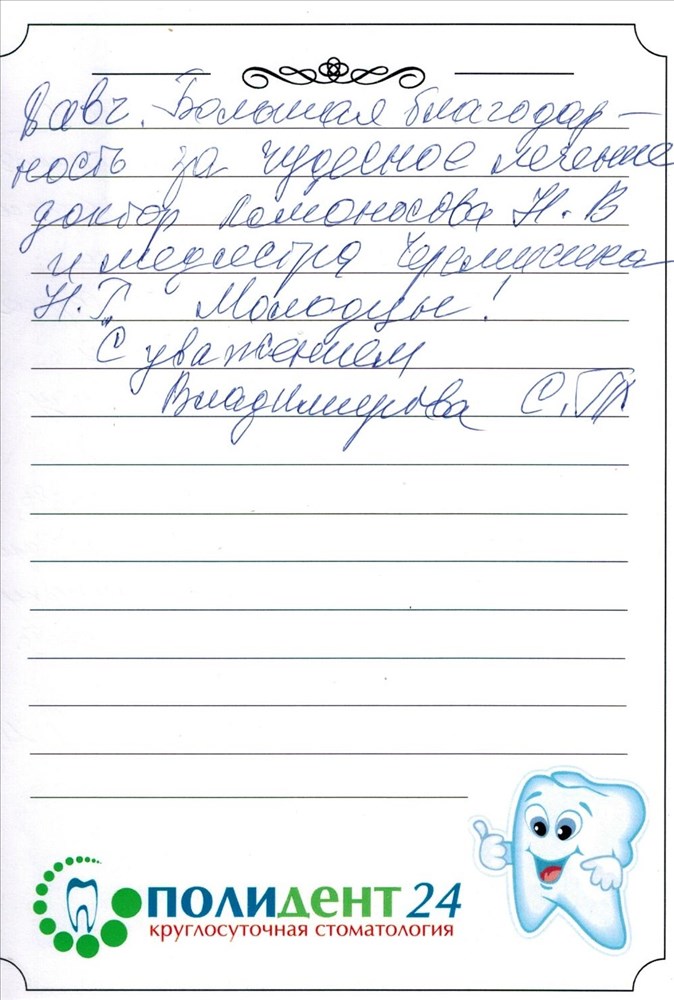 Большая благодар-
ность за чудесное лечение
доктор Ломоносова Н.В
и медсестра
Н.Г. Молодцы!
С уважением
Владимирова С.
ПОЛИДЕНТ 24
круглосуточная стоматология